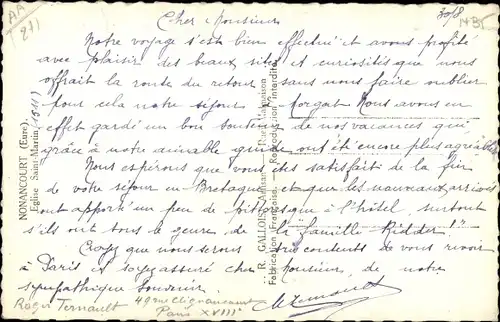 AA
271
30/8
Cher Monsieur
Notre voyage s'est bien effectué et avons profité
avec plaisir des beaux sites et curiosités que nous
offrait la route du retour sans nous faire oublier
pour cela notre séjour Nous avons en
effet gardé un bon souvenir de nos vacances qui
grâce à notre aimable guide ont été encore plus agréables
Nous espérons que vous êtes satisfait de la fin
de votre séjour en Bretagne et que les nouveaux arrivés
ont apporté un peu de pittoresque à l'hôtel, surtout
s'ils ont tous le genre de la famille Kidder !"
Croyez que nous serons très contents de vous revoir
à Paris et soyez assuré cher Monsieur de notre
sympathique souvenir
Roger Ternault 49 rue Clignancourt
Paris XVIIIe
NONANCOURT (Eure).
Eglise Saint-Martin (1511)
R. GALLOIS,
Fabrication Française. — Reproduction interdite.